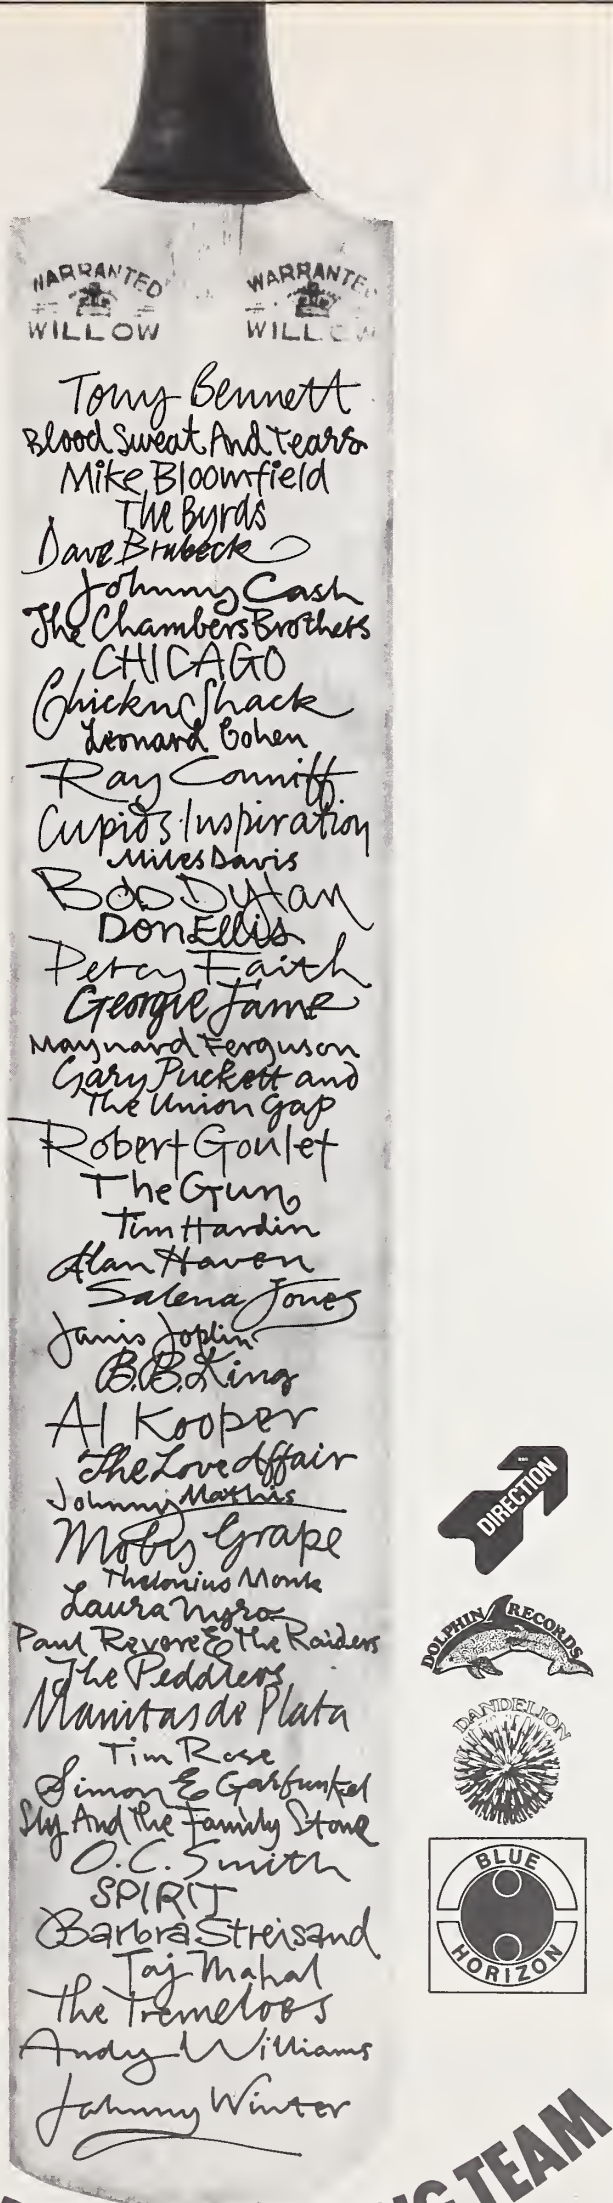 WARRANTED WILLOW
WARRANTED WILLOW
Tony Bennett
Blood Sweat And Tears
Mike Bloomfield
The Byrds
Dave Brubeck
Johnny Cash
The Chambers Brothers
CHICAGO
Chicken Shack
Leonard Cohen
Ray Conniff
Cupid's Inspiration
Miles Davis
Bob Dylan
Don Ellis
Percy Faith
Georgie Fame
Maynard Ferguson
Gary Puckett and
The Union Gap
Robert Goulet
The Gun
Tim Hardin
Alan Haven
Salena Jones
Janis Joplin
B.B. King
Al Kooper
The Love Affair
Johnny Mathis
Moby Grape
Thelonius Monk
Laura Nyro
Paul Revere & The Raiders
The Peddlers
Manitas de Plata
Tim Rose
Simon & Garfunkel
Sly And The Family Stone
O.C. Smith
SPIRIT
Barbra Streisand
Taj Mahal
The Tremeloes
Andy Williams
Johnny Winter
DIRECTION
DOLPHIN RECORDS
DANDELION
BLUE
HORIZON
TEAM